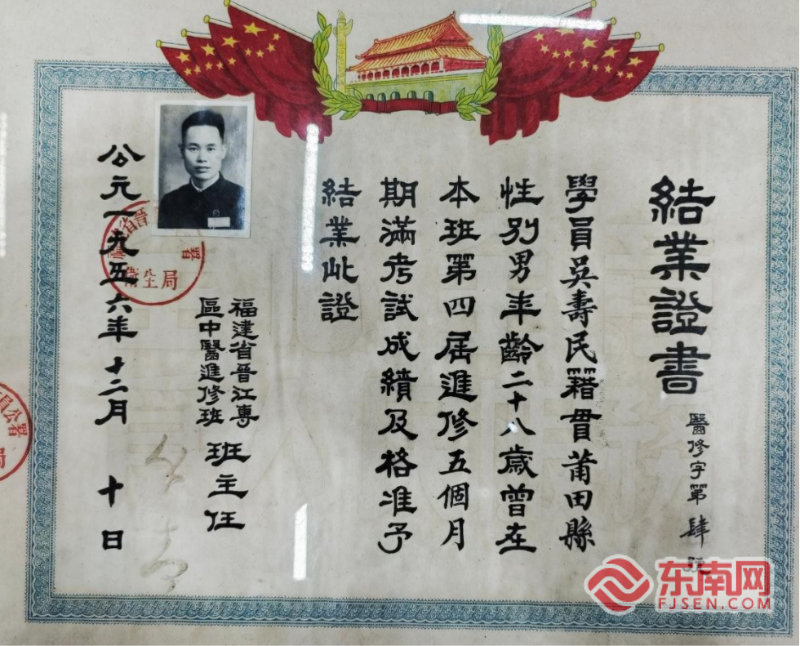 結業證書
醫修字第肆
學員吳壽民籍貫莆田縣
性别男年齡二十八歲曾在
本班第四屆進修五個月
期滿考試成績及格准予
結業此證
福建省晉江專
區中醫進修班
班主任
公元一九五六年十二月十日
省晉
署
衛生局
員公署
局
东南网
FJSEN.COM